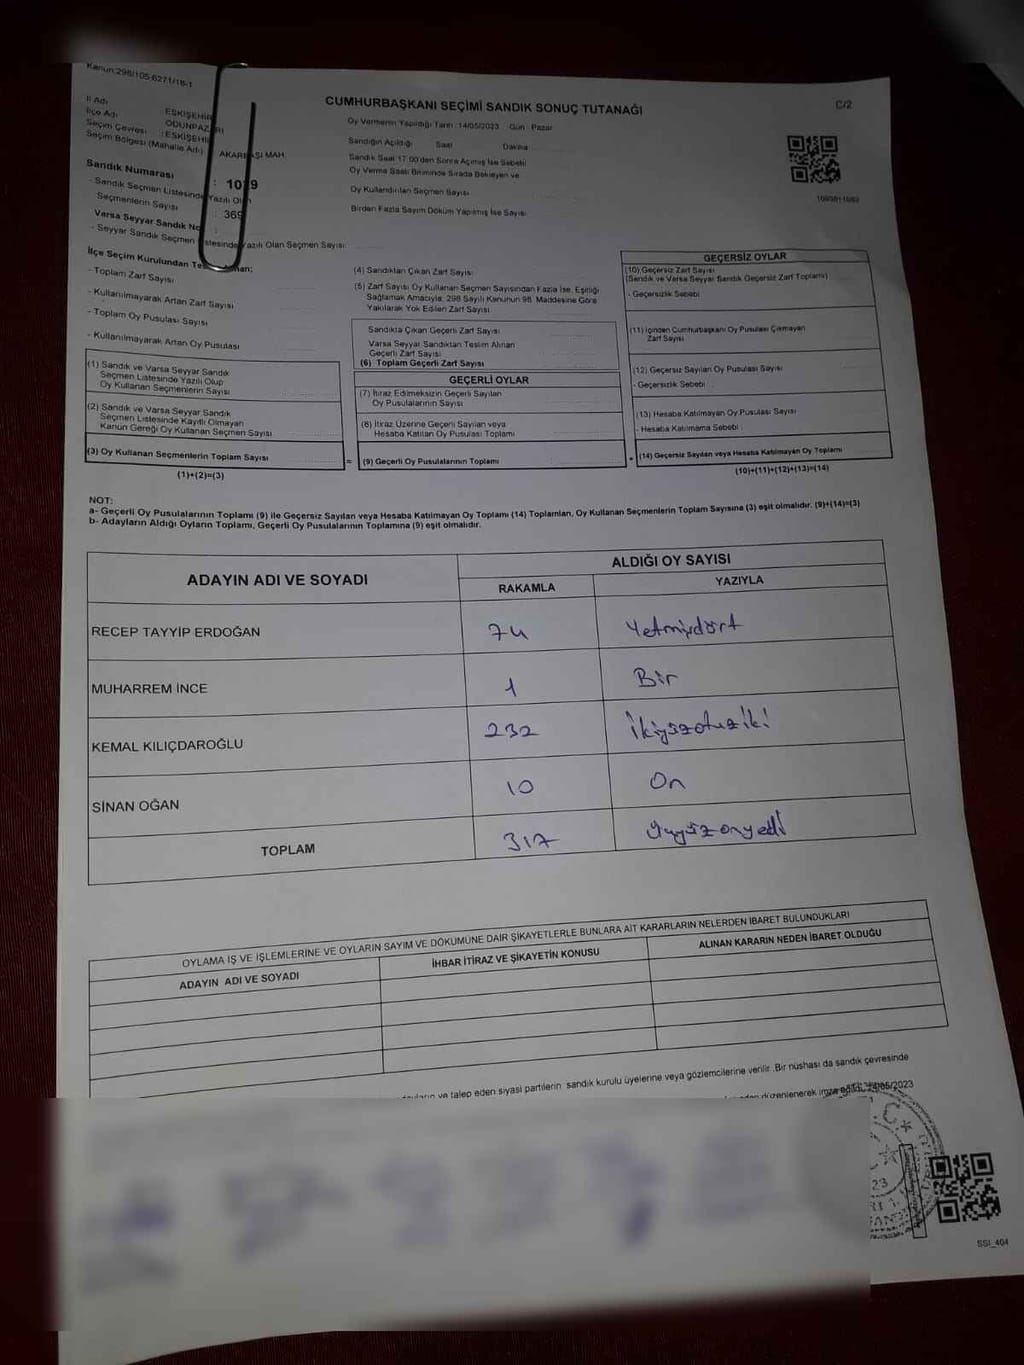 Kanun:298/105-6271/18-1
CUMHURBAŞKANI SEÇİMİ SANDIK SONUÇ TUTANAĞI
C/2
İl Adı : ESKİŞEHİR
İlçe Adı : ODUNPAZARI
Seçim Çevresi : ESKİŞEHİR
Seçim Bölgesi (Mahalle Adı) AKARBAŞI MAH.
Sandık Numarası :
- Sandık Seçmen Listesinde Yazılı Olan
Seçmenlerin Sayısı : 369
Varsa Seyyar Sandık No :
- Seyyar Sandık Seçmen Listesinde Yazılı Olan Seçmen Sayısı:
Oy Vermenin Yapıldığı Tarih :14/05/2023 Gün : Pazar
Sandığın Açıldığı Saat Dakika
Sandık Saat 17:00'den Sonra Açılmış İse Sebebi
Oy Verme Saati Bitiminde Sırada Bekleyen ve
Oy Kullandırılan Seçmen Sayısı
Birden Fazla Sayım Döküm Yapılmış İse Sayısı
İlçe Seçim Kurulundan Teslim Alınan;
- Toplam Zarf Sayısı
- Kullanılmayarak Artan Zarf Sayısı
- Toplam Oy Pusulası Sayısı
- Kullanılmayarak Artan Oy Pusulası
(1) Sandık ve Varsa Seyyar Sandık
Seçmen Listesinde Yazılı Olup
Oy Kullanan Seçmenlerin Sayısı
(2) Sandık ve Varsa Seyyar Sandık
Seçmen Listesinde Kayıtlı Olmayan
Kanun Gereği Oy Kullanan Seçmen Sayısı
(3) Oy Kullanan Seçmenlerin Toplam Sayısı
(1)+(2)=(3)
(4) Sandıktan Çıkan Zarf Sayısı
(5) Zarf Sayısı Oy Kullanan Seçmen Sayısından Fazla İse, Eşitliği
Sağlamak Amacıyla, 298 Sayılı Kanunun 98. Maddesine Göre
Yakılarak Yok Edilen Zarf Sayısı
Sandıkta Çıkan Geçerli Zarf Sayısı
Varsa Seyyar Sandıktan Teslim Alınan
Geçerli Zarf Sayısı
(6) Toplam Geçerli Zarf Sayısı
GEÇERLİ OYLAR
(7) İtiraz Edilmeksizin Geçerli Sayılan
Oy Pusulalarının Sayısı
(8) İtiraz Üzerine Geçerli Sayılan veya
Hesaba Katılan Oy Pusulası Toplamı
= (9) Geçerli Oy Pusulalarının Toplamı
GEÇERSİZ OYLAR
(10) Geçersiz Zarf Sayısı
(Sandık ve Varsa Seyyar Sandık Geçersiz Zarf Toplamı)
- Geçersizlik Sebebi
(11) İçinden Cumhurbaşkanı Oy Pusulası Çıkmayan
Zarf Sayısı
(12) Geçersiz Sayılan Oy Pusulası Sayısı
- Geçersizlik Sebebi
(13) Hesaba Katılmayan Oy Pusulası Sayısı
- Hesaba Katılmama Sebebi
+ (14) Geçersiz Sayılan veya Hesaba Katılmayan Oy Toplamı
(10)+(11)+(12)+(13)=(14)
NOT:
a- Geçerli Oy Pusulalarının Toplamı (9) ile Geçersiz Sayılan veya Hesaba Katılmayan Oy Toplamı (14) Toplamları, Oy Kullanan Seçmenlerin Toplam Sayısına (3) eşit olmalıdır. (9)+(14)=(3)
b- Adayların Aldığı Oyların Toplamı, Geçerli Oy Pusulalarının Toplamına (9) eşit olmalıdır.
ADAYIN ADI VE SOYADI
ALDIĞI OY SAYISI
RAKAMLA YAZIYLA
RECEP TAYYİP ERDOĞAN 74 Yetmişdört
MUHARREM İNCE 1 Bir
KEMAL KILIÇDAROĞLU 232 İkiyüzotuziki
SİNAN OĞAN 10 On
TOPLAM 317 Üçyüzonyedi
OYLAMA İŞ VE İŞLEMLERİNE VE OYLARIN SAYIM VE DÖKÜMÜNE DAİR ŞİKAYETLERLE BUNLARA AİT KARARLARIN NELERDEN İBARET BULUNDUKLARI
ADAYIN ADI VE SOYADI İHBAR İTİRAZ VE ŞİKAYETİN KONUSU ALINAN KARARIN NEDEN İBARET OLDUĞU
ve talep eden siyasi partilerin sandık kurulu üyelerine veya gözlemcilerine verilir. Bir nüshası da sandık çevresinde
düzenlenerek imza edildi.
SSI_404